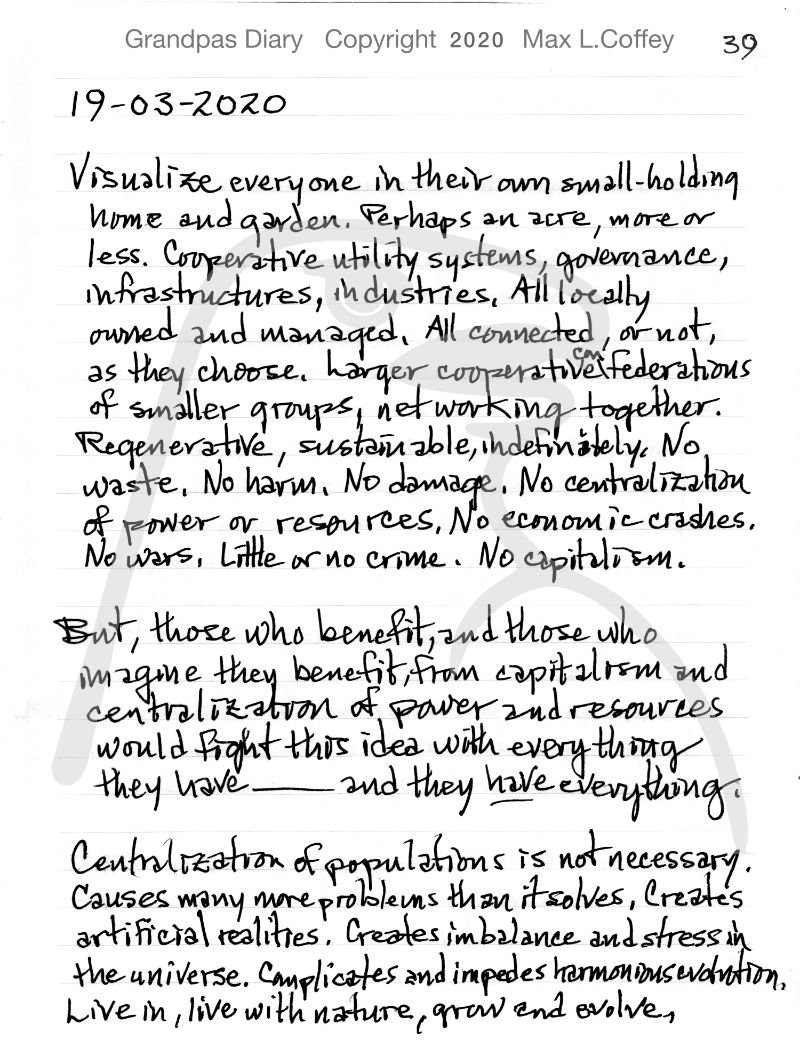 Grandpas Diary Copyright 2020 Max L.Coffey 39
19-03-2020
Visualize everyone in their own small-holding
home and garden. Perhaps an acre, more or
less. Cooperative utility systems, governance,
infrastructures, industries. All locally
owned and managed. All connected, or not,
as they choose. Larger cooperative confederations
of smaller groups, networking together.
Regenerative, sustainable, indefinitely. No
waste. No harm. No damage. No centralization
of power or resources. No economic crashes.
No wars. Little or no crime. No capitalism.
But, those who benefit, and those who
imagine they benefit, from capitalism and
centralization of power and resources
would fight this idea with everything
they have —— and they have everything.
Centralization of populations is not necessary.
Causes many more problems than it solves. Creates
artificial realities. Creates imbalance and stress in
the universe. Complicates and impedes harmonious evolution.
Live in, live with nature, grow and evolve,